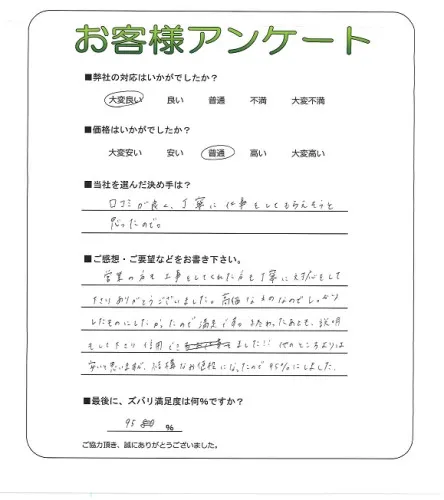 お客様アンケート
■弊社の対応はいかがでしたか?
大変良い 良い 普通 不満 大変不満
■価格はいかがでしたか?
大変安い 安い 普通 高い 大変高い
■当社を選んだ決め手は?
口コミが良く、丁寧に仕事をしてもらえそうと
思ったので。
■ご感想・ご要望などをお書き下さい。
営業の方も工事をしてくれた方も丁寧に対応をして
下さりありがとうございました。高価なものなのでしっかり
したものにしたかったので満足です。終わったあとも、説明
をして下さり信用でき ました!! 他のところよりは
安いと思いますが、結構なお値段になったので95%にしました。
■最後に、ズバリ満足度は何%ですか?
95 %
ご協力頂き、誠にありがとうございました。